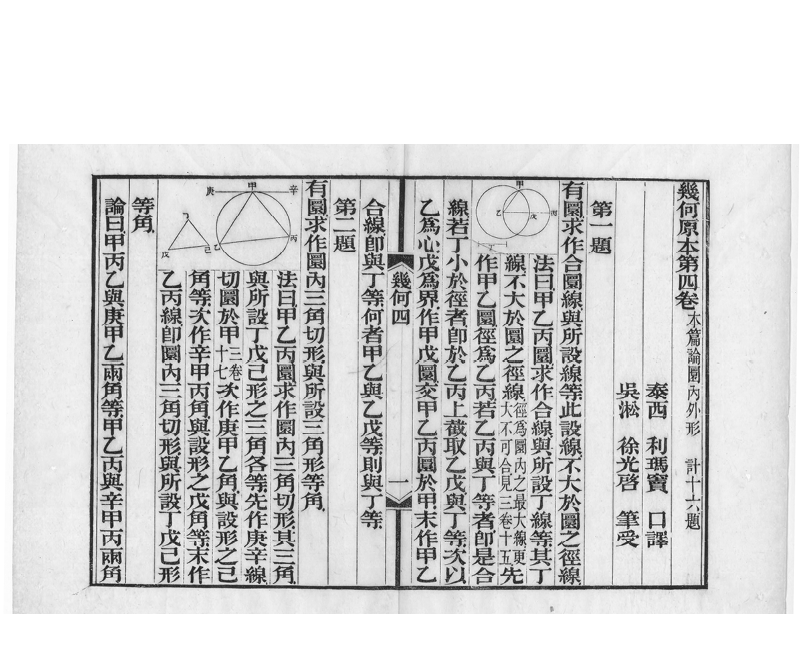 幾何原本第四卷 本篇論圜內外形 計十六題
泰西 利瑪竇 口譯
吳淞 徐光啓 筆受
第一題
有圜求作合圜線與所設線等此設線不大於圜之徑線
法曰甲乙丙圜求作合線與所設丁線等其丁
線不大於圜之徑線徑爲圜內之最大線更大不可合見三卷十五先
作甲乙圜徑爲乙丙若乙丙與丁等者即是合
線若丁小於徑者即於乙丙上截取乙戊與丁等次以
乙爲心戊爲界作甲戊圜交甲乙丙圜於甲末作甲乙
幾何四
一
合線即與丁等何者甲乙與乙戊等則與丁等
第二題
有圜求作圜內三角切形與所設三角形等角
法曰甲乙丙圜求作圜內三角切形其三角
與所設丁戊己形之三角各等先作庚辛線
切圜於甲三卷十七次作庚甲乙角與設形之己
角等次作辛甲丙角與設形之戊角等末作
乙丙線即圜內三角切形與所設丁戊己形
等角
論曰甲丙乙與庚甲乙兩角等甲乙丙與辛甲丙兩角
甲
乙
戊
丙
丁
庚
甲
辛
乙
丙
丁
戊
己